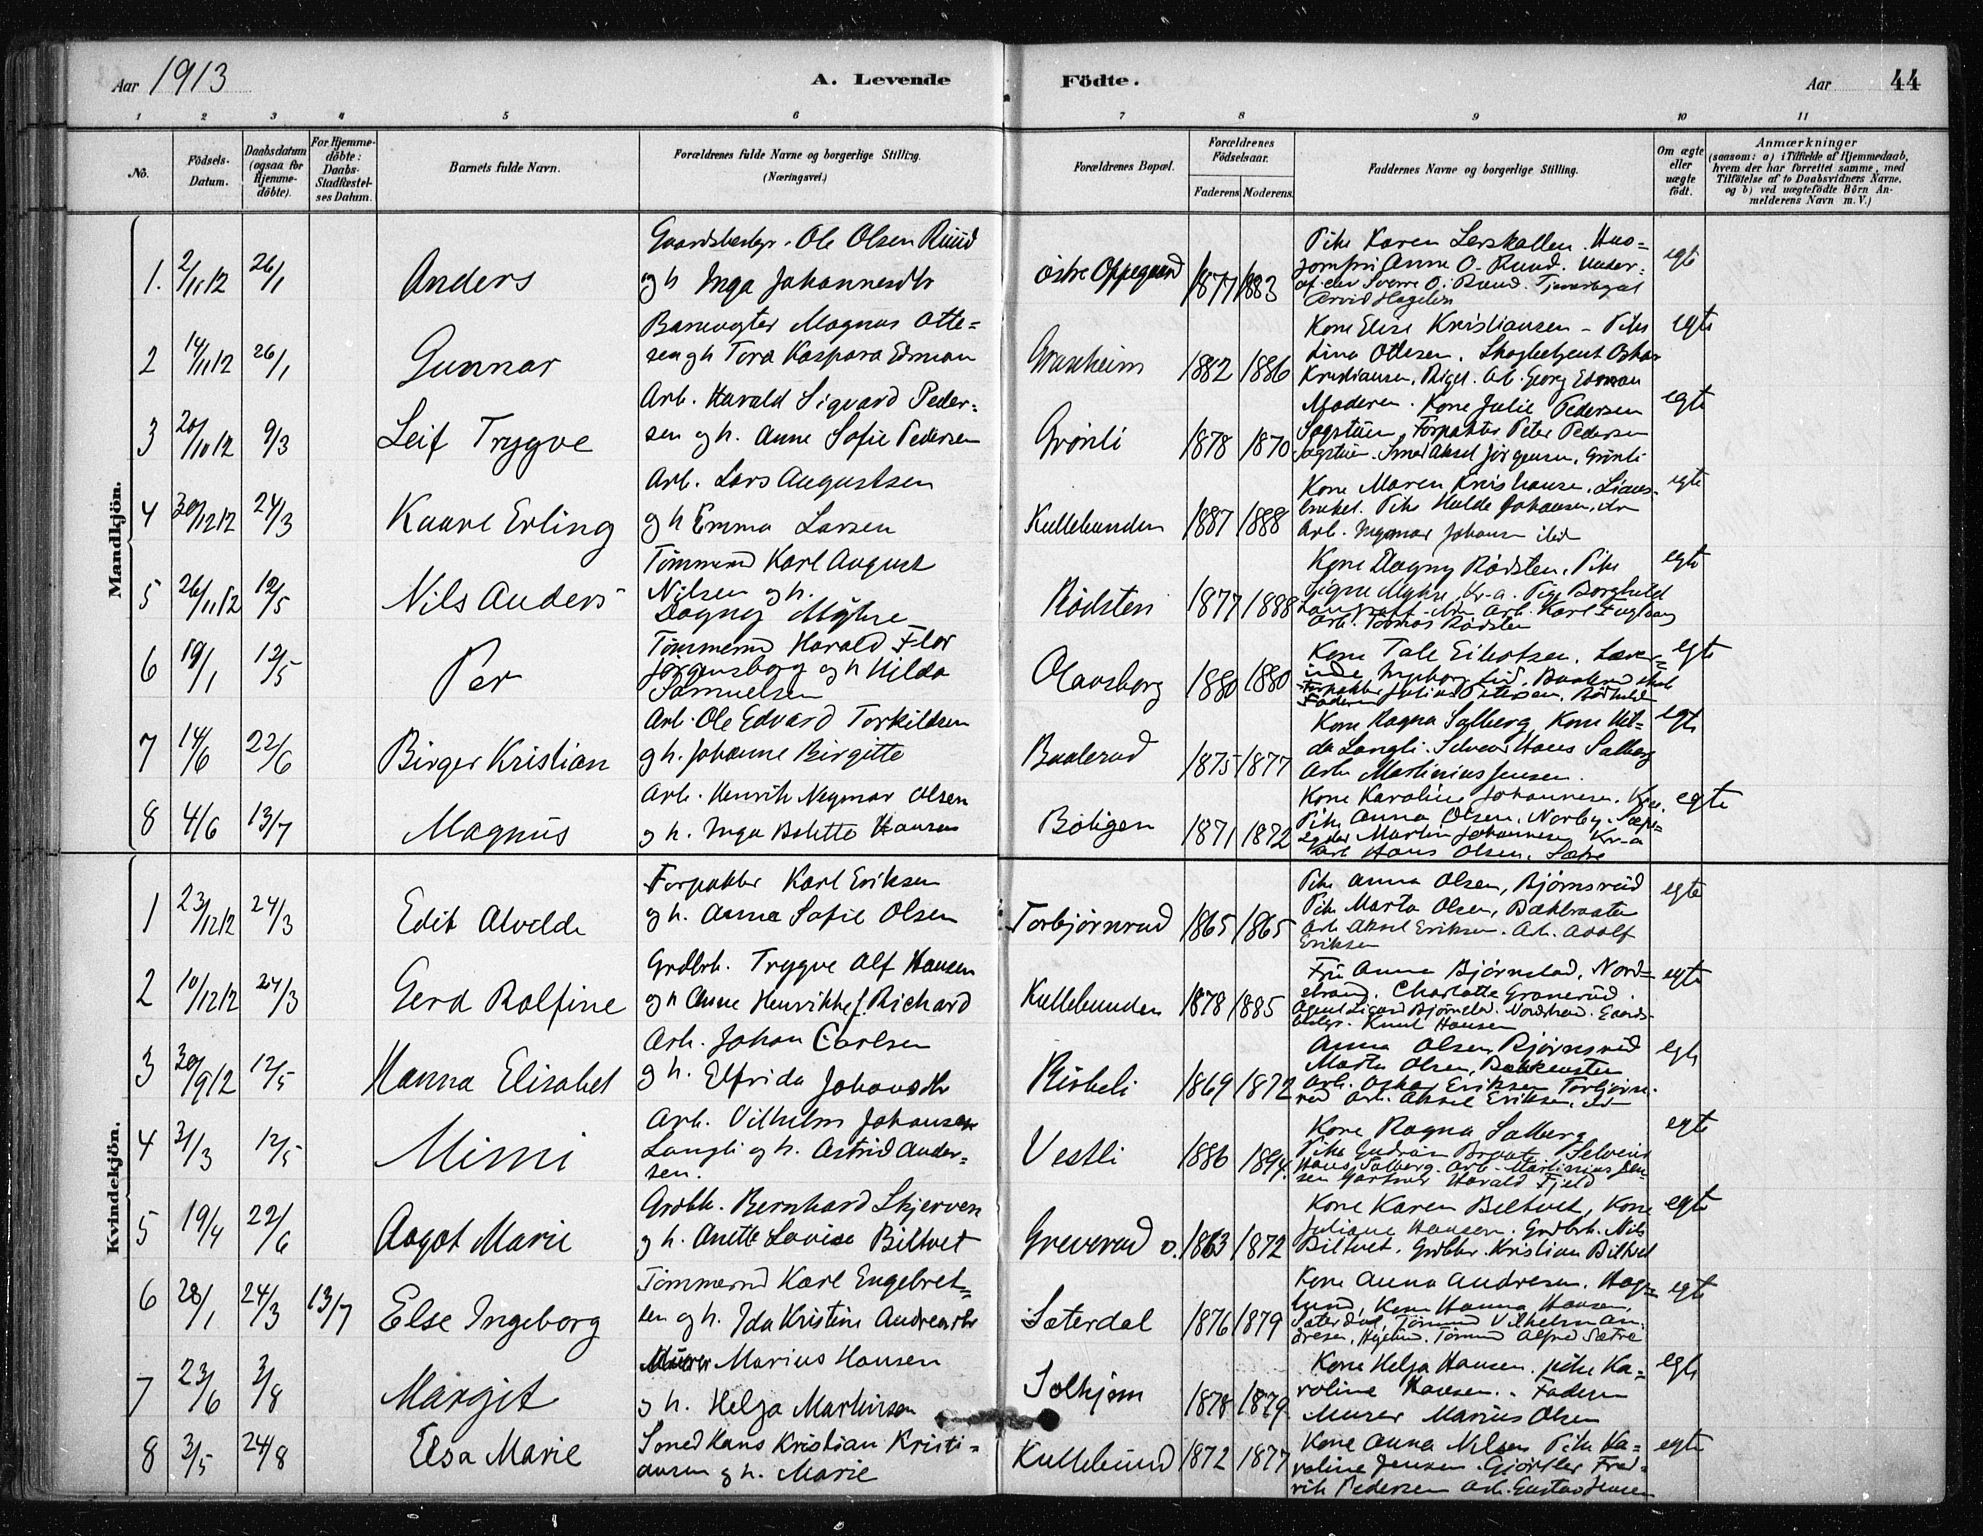 Aar 1913
A. Levende Födte.
Aar 44
1 2 3 4 5 6 7 8 9 10 11
No.
Födsels-Datum.
Daabsdatum (ogsaa for Hjemme-döbte).
For Hjemme-döbte: Daabs-Stadfæstel-ses Datum.
Barnets fulde Navn.
Forældrenes fulde Navne og borgerlige Stilling. (Næringsvei.)
Forældrenes Bopæl.
Forældrenes Födselsaar.
Faderens Moderens
Faddernes Navne og borgerlige Stilling.
Om ægte eller uægte födt.
Anmærkninger
(saasom: a) i Tilfælde af Hjemmedaab, hvem der har forrettet samme, med Tilföielse af to Daabsvidners Navne, og b) ved uægtefödte Börn An-melderens Navn m. V.)
Mandkjön.
1. 2/11 12 26/1 Anders
Gaardsbestyr. Ole Olsen Ruud
og h Inga Johannesdtr
østre Oppegaard 1877 1883
Pike Karen Lerskallen. Hus-
jomfru Anne O. Ruud. Under-
of. elev Sverre O. Ruud.
Arvid Hagelin
egte
2 14/11 12 26/1 Gunnar
Banevogter Magnus Otte-
sen g h Tora Kaspara Edman
Granheim 1882 1886
Kone Elise Kristiansen - Pike
Lina Ottesen. Skogbetjent Oskar
Kristiansen, Arb. Georg Edman
egte
3 20/10 12 9/3 Leif Trygve
Arb. Harald Sigvard Peder-
sen og h. Anne Sofie Pedersen
Grønli 1878 1870
Moderen. Kone Julie Pedersen
Sagstuen, Forpakter Peter Pedersen
Sagstuen. Smed Aksel Jørgensen, Grønli
egte
4 30/12 12 24/3 Kaare Erling
Arb. Lars Augustsen
og h Emma Larsen
Kullebunden 1887 1888
Kone Maren Kristiansen, Lians-
bakket. Pike Hulda Johansen,
Arb. Ingmar Johansen ibid
egte
5 26/11 12 12/5 Nils Anders
Tömmermd Karl August
Nilsen og h.
Dagny Myhre
Rödsten 1877 1888
Kone Dagny Rödsten, Pike
Signe Myhre, Kr-a. Pige Borghild
Arb. Karl Fuglvaag
Arb. Tomas Rödsten
egte
6 19/1 12/5 Per
Tömmermd Harald Flor
Jörgensborg og h Hilda
Samuelsen
Olavsborg 1880 1880
Kone Tale Eilertsen. Lærer-
inde Ingeborg Lid,
Forpakter Julius Petersen, Rödsten
Faderen
egte
7 14/6 22/6 Birger Kristian
Arb. Ole Edvard Torkildsen
g h. Johanne Birgitte
Baalerud 1875 1877
Kone Ragna Solberg, Kone Hil-
da Langli. Selveier Hans Solberg
Arb Martinius Jensen.
egte
8 4/6 13/7 Magnus
Arb. Henrik Negmar Olsen
og h. Inga Bolette Hansen
Boligen 1871 1872
Kone Karoline Johannesen. Kra.
Pike Anna Olsen, Norby.
Martin Johannesen Kr-a
Hans Olsen, Sætre
egte
Kvindekjön.
1 23/12 12 24/3 Edit Alvilde
Forpakter Karl Eriksen
og h. Anna Sofie Olsen
Torbjørnrud 1865 1865
Pike Anna Olsen, Bjørnsrud
Pike Marta Olsen, Bakkvaten
Arb. Aksel Eriksen. Arb. Adolf
Eriksen
egte
2 10/12 12 24/3 Gerd Rolfine
Grdbr. Trygve Alf Hansen
og h Anne Henrikke f. Richard
Kullebunden 1878 1885
Fru Anna Bjørnstad, Nord-
strand. Charlotte Granerud.
Agent Sigurd Bjørnstad. Nordstrand. Gaards-
bestyr. Knut Hansen
egte
3 30/9 12 12/5 Hanna Elisabet
Arb. Johan Carlsen
g h. Elfrida Johansdtr
Risheli 1869 1872
Anna Olsen Bjørnsrud
Marta Olsen, Bakkvaten
Arb. Oskar Eriksen Torbjørn-
rud Arb. Aksel Eriksen,
egte
4 31/3 12/5 Mimi
Arb. Vilhelm Johansen
Langli og h. Astrid Ander-
sen.
Vestli 1886 1894.
Kone Ragna Solberg
Pike Gudrun Selveier
Hans Solberg. Arb. Martinius Jen-
sen Gartner Harald Fjeld
egte
5 19/4 22/6 Aagot Marie
Grdbr. Bernhard Skjerven
g h. Anette Lovise Biltvet
Greverud o. 1863 1872
Kone Karen Biltvet, Kone
Juliane Hansen. Grdbr. Nils
Biltvet. Grdbr. Kristian Biltvet
egte
6 28/1 24/3 13/7 Else Ingeborg
Tömmermd Karl Engebret-
sen og h. Ida Kristine Andreasdtr
Sæterdal 1876 1879
Kone Anna Andresen, Hog-
lund, Kone Hanna Hansen,
Sæterdal, Tømmermd Vilhelm An-
dresen, Tømmermd Alfred Sætre
egte
7 23/6 3/8 Margit
Murer Marius Hansen
g h. Helga Martinsen
Solhjem 1878 1879
Kone Helga Hansen, pike Ka-
roline Hansen. Faderen
Murer Marius Olsen
egte
8 3/5 24/8 Elsa Marie
Smed Hans Kristian Kristi-
ansen g h. Marie
Kullebund 1872 1877
Kone Anna Nilsen Pike Ka-
roline Jensen. Gjørtler Fred-
rik Pedersen Arb. Gustav Jensen
egte